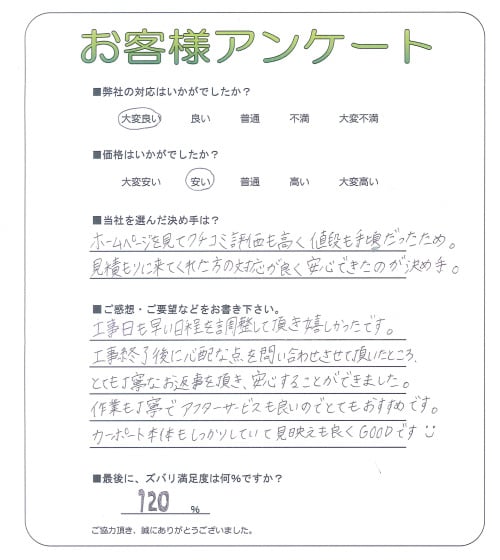 お客様アンケート
■弊社の対応はいかがでしたか？
大変良い 良い 普通 不満 大変不満
■価格はいかがでしたか？
大変安い 安い 普通 高い 大変高い
■当社を選んだ決め手は？
ホームページを見てクチコミ評価も高く値段も手頃だったため。
見積もりに来てくれた方の対応が良く安心できたのが決め手。
■ご感想・ご要望などをお書き下さい。
工事日も早い日程を調整して頂き嬉しかったです。
工事終了後に心配な点を問い合わせさせて頂いたところ、
とても丁寧なお返事を頂き、安心することができました。
作業も丁寧でアフターサービスも良いのでとてもおすすめです。
カーポート本体もしっかりしていて見映えも良くGOODです
■最後に、ズバリ満足度は何％ですか？
120 %
ご協力頂き、誠にありがとうございました。